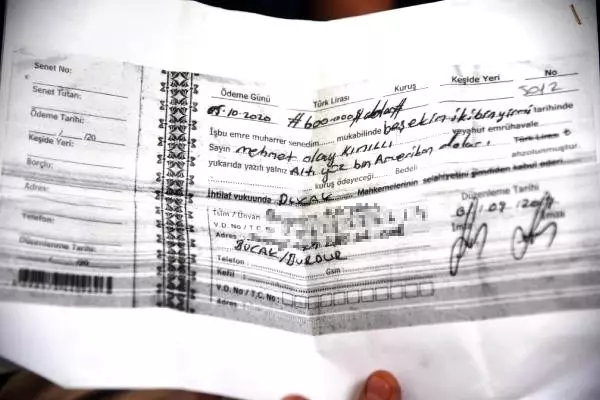 Senet No:
Senet Tutarı:
Ödeme Tarihi:
__/__/20
Keşide Yeri:
Borçlu:
Adres:
Telefon:
Düzenleme Tarihi:
/20
Ödeme Günü Türk Lirası Kuruş Keşide Yeri No
05.10.2020 #600.000# dolar# 5012
İşbu emre muharrer senedim mukabilinde beş ekim ikibinyirmi tarihinde
Sayın mehmet olay veyahut emrühavale
yukarıda yazılı yalnız Altı yüz bin Amerikan doları Türk Lirası
kuruş ödeyeceği Bedeli ahzolunmuştur.
İhtilaf vukuunda BUCAK Mahkemelerinin selahiyetini şimdiden kabul ederi
Düzenleme Tarihi
İsim / Ünvan
V. D. No / T.C.
Adres
BUCAK/BURDUR
Telefon Gsm
Kefil
V.D. No / T.C. No:
Adres